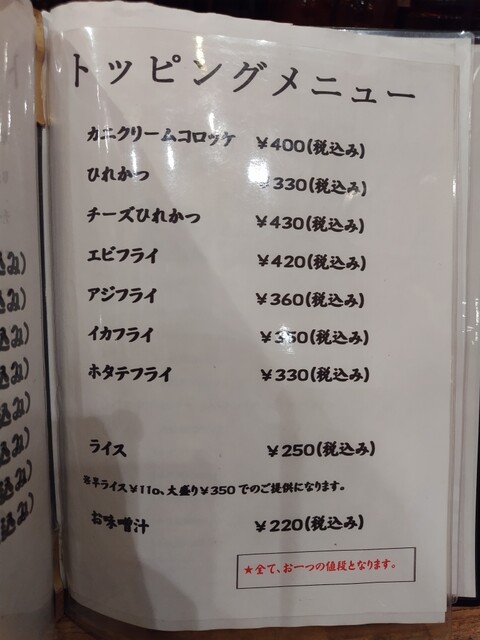 トッピングメニュー
カニクリームコロッケ ¥400(税込み)
ひれかつ ¥330(税込み)
チーズひれかつ ¥430(税込み)
エビフライ ¥420(税込み)
アジフライ ¥360(税込み)
イカフライ ¥350(税込み)
ホタテフライ ¥330(税込み)
ライス ¥250(税込み)
※半ライス¥110、大盛り¥350でのご提供になります。
お味噌汁 ¥220(税込み)
★全て、お一つの値段となります。
込み)
込み)
込み)
込み)
込み)
込み)
込み)
込み)